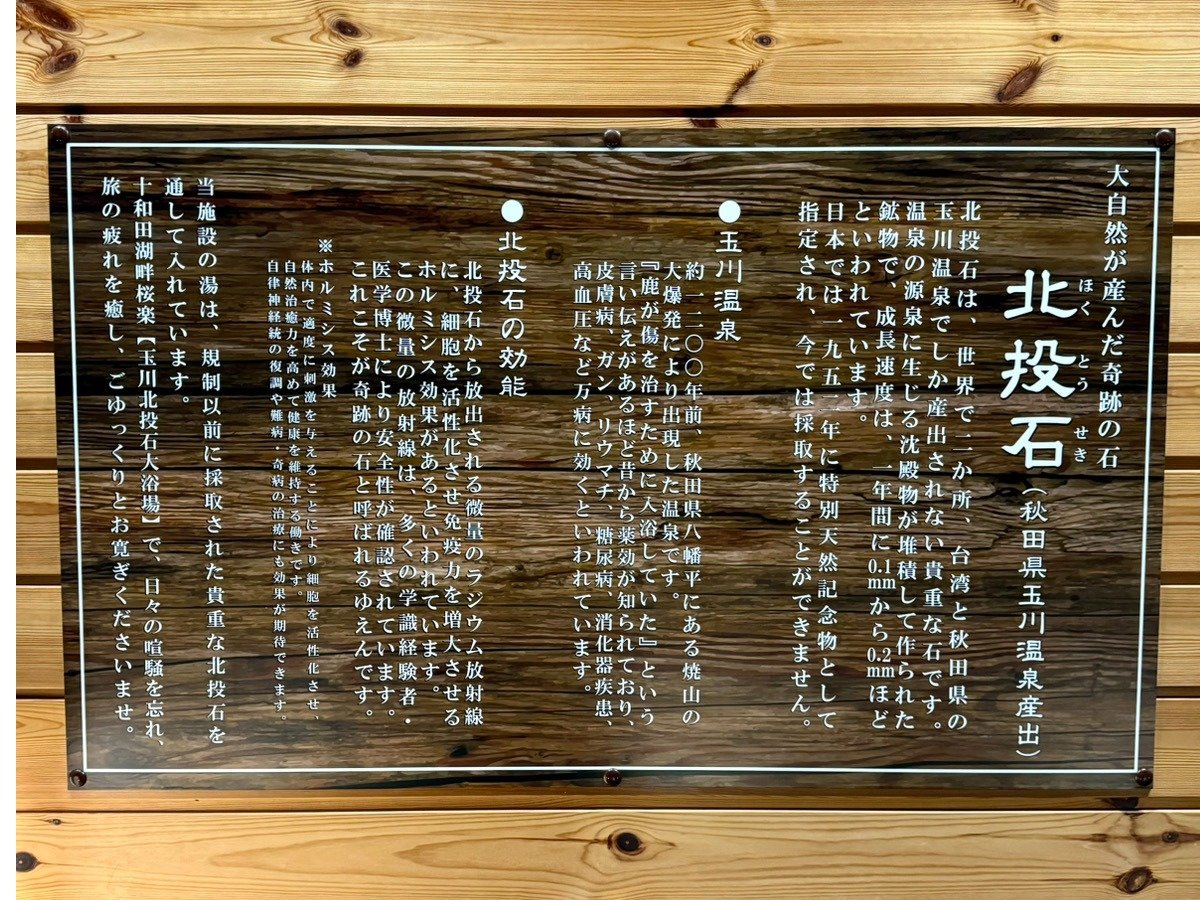 大自然が産んだ奇跡の石
北投石（秋田県玉川温泉産出）
ほくとうせき
北投石は、世界で二か所、台湾と秋田県の
玉川温泉でしか産出されない貴重な石です。
温泉の源泉に生じる沈殿物が堆積して作られた
鉱物で、成長速度は、一年間に0.1mmから0.2mmほど
といわれています。
日本では一九五二年に特別天然記念物として
指定され、今では採取することができません。
●玉川温泉
約一二〇〇年前、秋田県八幡平にある焼山の
大爆発により出現した温泉です。
『鹿が傷を治すために入浴していた』という
言い伝えがあるほど昔から薬効が知られており、
皮膚病、ガン、リウマチ、糖尿病、消化器疾患、
高血圧など万病に効くといわれています。
●北投石の効能
北投石から放出される微量のラジウム放射線
に、細胞を活性化させ免疫力を増大させる
ホルミシス効果があるといわれています。
この微量の放射線は、多くの学識経験者・
医学博士により安全性が確認されています。
これこそが奇跡の石と呼ばれるゆえんです。
※ホルミシス効果
体内で適度に刺激を与えることにより細胞を活性化させ、
自然治癒力を高めて健康を維持する働きです。
自律神経統の復調や難病・奇病の治療にも効果が期待できます。
当施設の湯は、規制以前に採取された貴重な北投石を
通して入れています。
十和田湖畔桜楽【玉川北投石大浴場】で、日々の喧騒を忘れ、
旅の疲れを癒し、ごゆっくりとお寛ぎくださいませ。